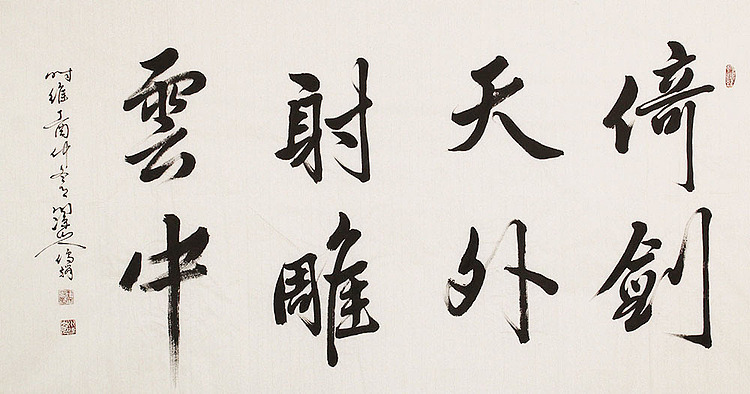 倚剑
天外
射雕
雲中
时维丁酉仲冬